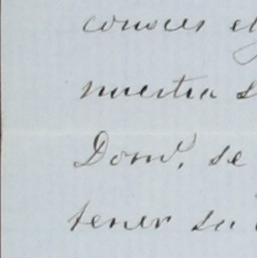 conoces el
nuestra s
Domº. se
tener su